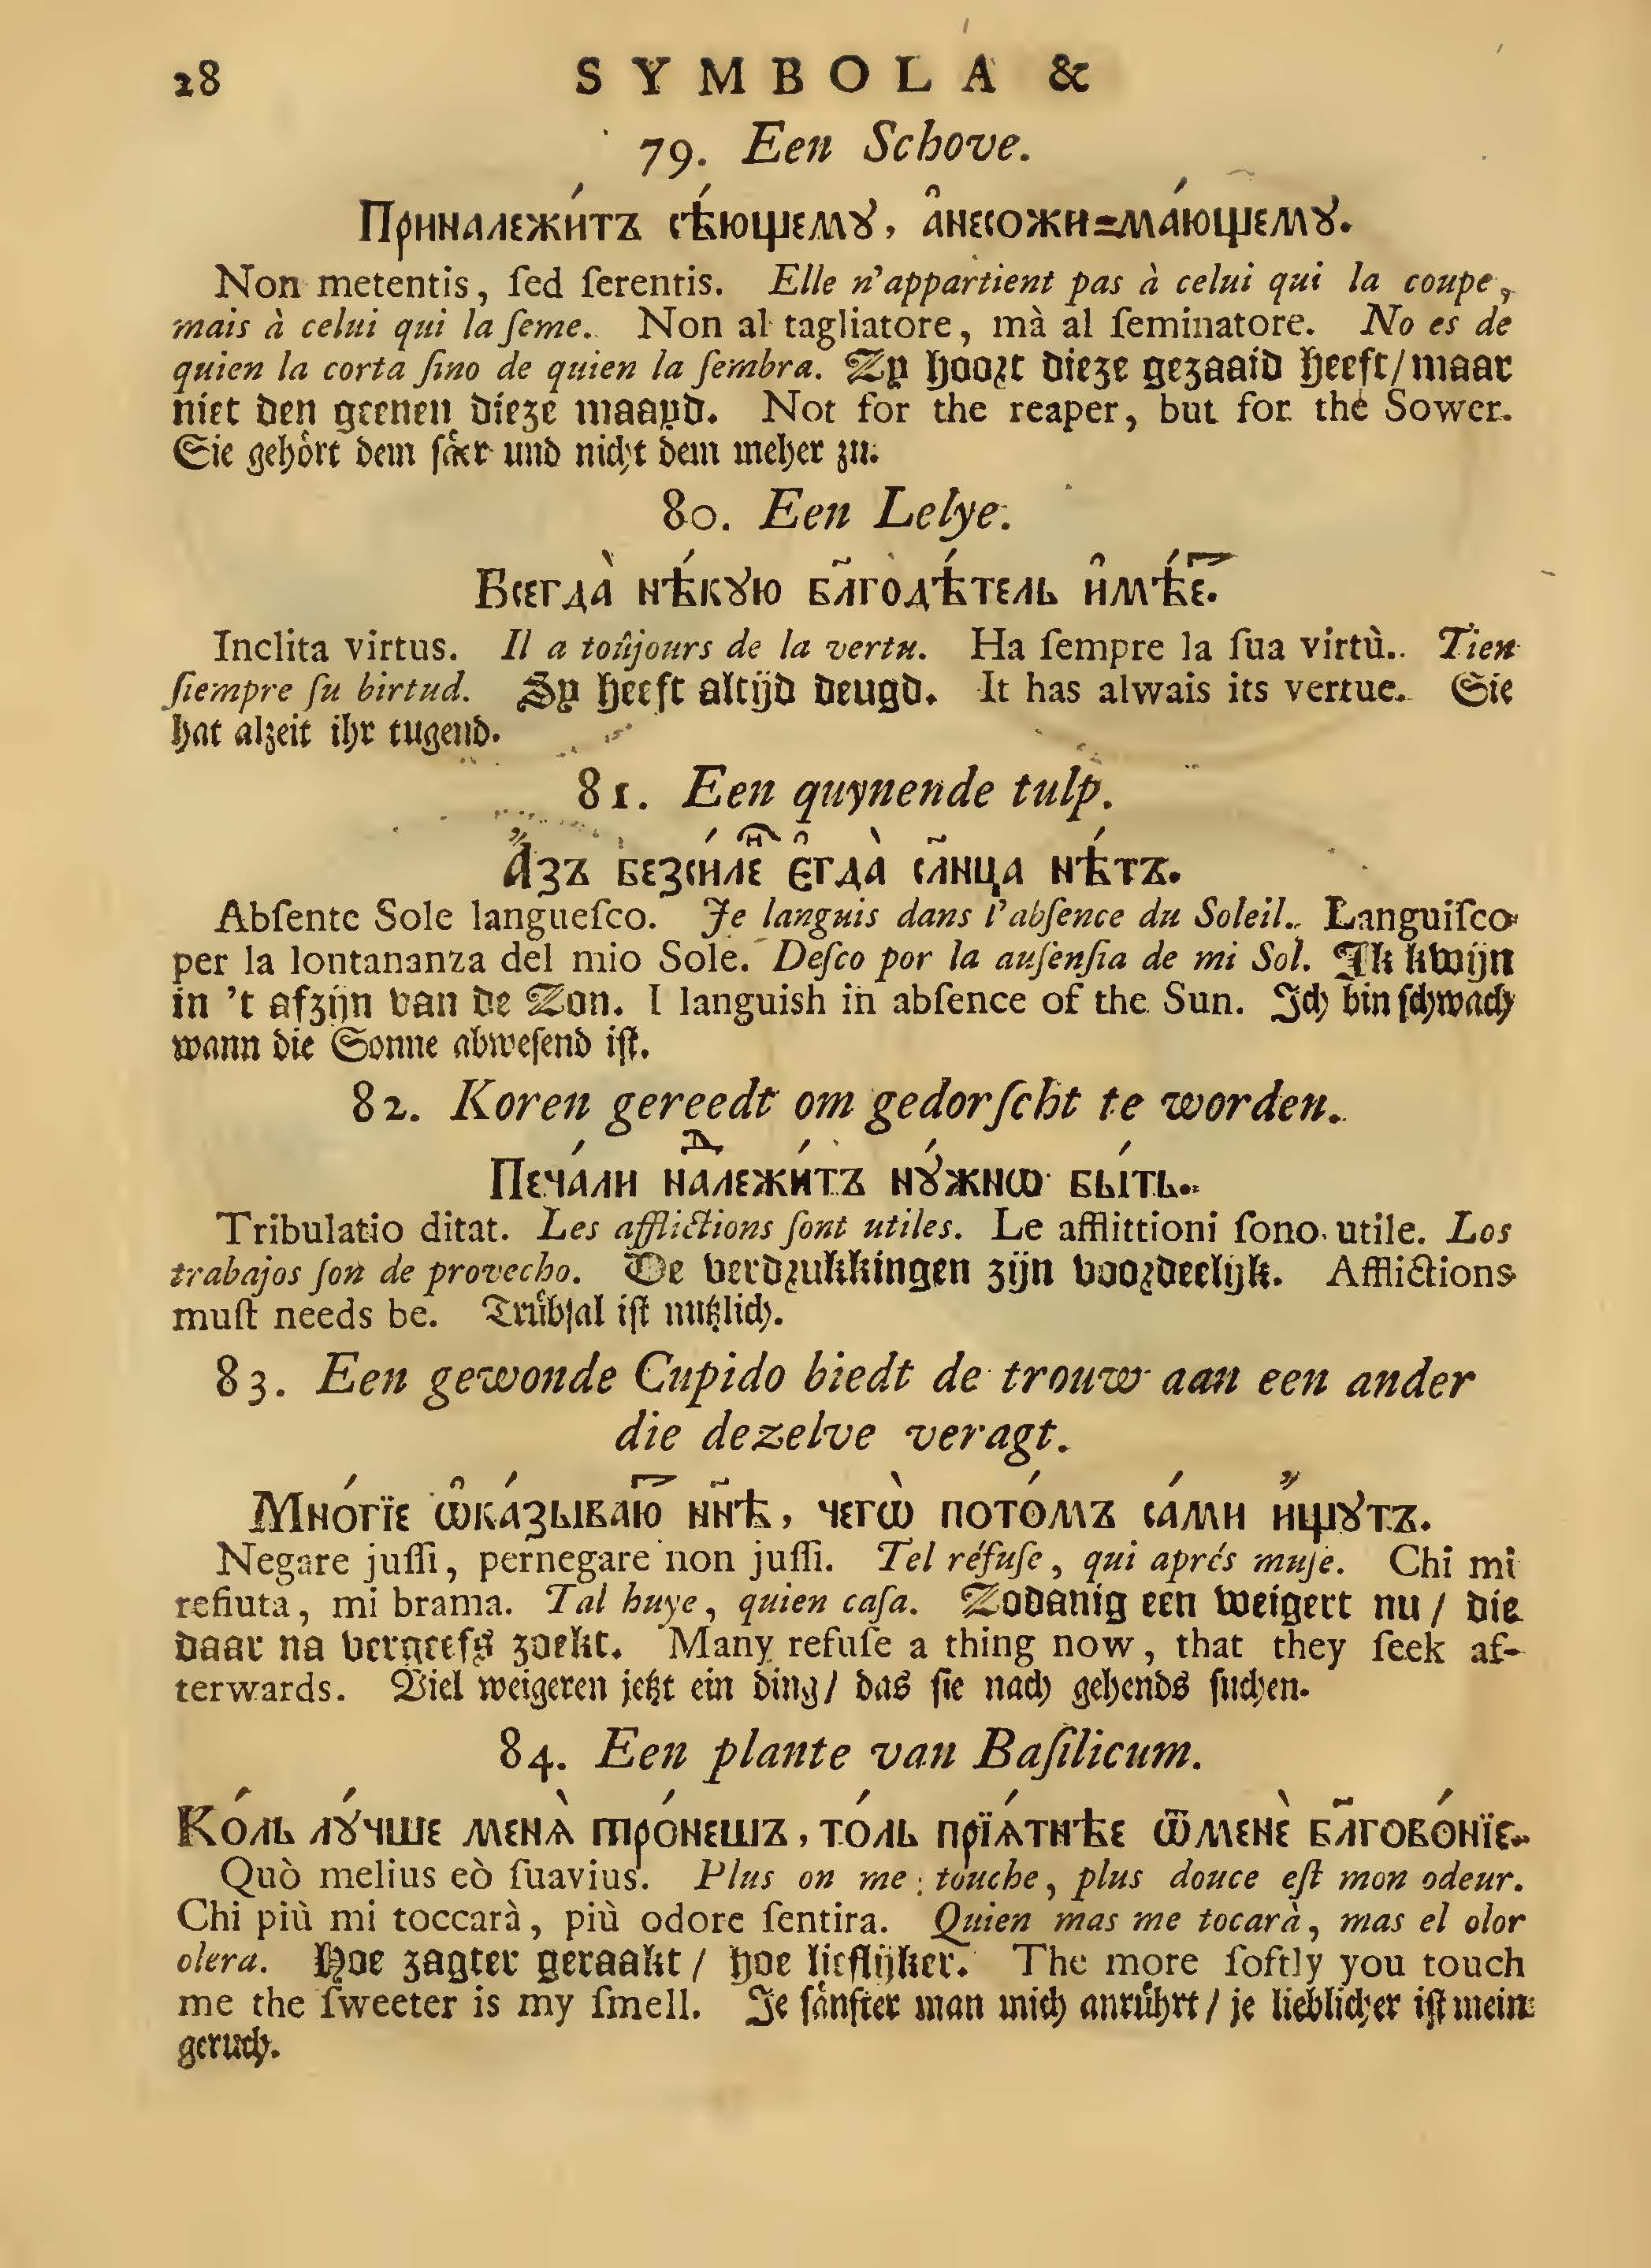 28 SYMBOLA &
79. Een Schove.
Приналежи́тъ сѣ́ющемꙋ, а̂несожи=ма́ющемꙋ.
Non metentis, ſed ſerentis. Elle n'appartient pas à celui qui la coupe,
mais à celui qui la ſeme. Non al tagliatore, mà al ſeminatore. No es de
quien la corta ſino de quien la ſembra. Zy hoort dieze gezaaid heeft / maar
niet den geenen dieze maayd. Not for the reaper, but for the Sower.
Sie gehoͤrt dem ſaͤer und nicht dem meher zu.
80. Een Lelye.
Всегда̀ нѣ́кꙋю бл҃годѣ́тель и̂мѣ́е.
Inclita virtus. Il a toûjours de la vertu. Ha ſempre la ſua virtù. Tien
ſiempre ſu birtud. Zy heeft altijd deugd. It has alwais its vertue. Sie
hat alzeit ihr tugend.
81. Een quynende tulp.
А҆́зъ безси́ле є̂гда̀ сл҃нца нѣ́тъ.
Abſente Sole langueſco. Je languis dans l'abſence du Soleil. Languiſco
per la lontananza del mio Sole. Deſco por la auſenſia de mi Sol. Ik kwijn
in 't afzijn van de Zon. I languish in abſence of the Sun. Ich bin ſchwach
wann die Sonne abweſend iſt.
82. Koren gereedt om gedorſcht te worden.
Печа́ли наⷣлежи́тъ нꙋ́жнѡ бы́ть.
Tribulatio ditat. Les afflictions ſont utiles. Le afflittioni ſono utile. Los
trabajos ſon de provecho. De verdrukkingen zijn voordeelijk. Afflictions
muſt needs be. Truͤbſal iſt nutzlich.
83. Een gewonde Cupido biedt de trouw aan een ander
die dezelve veragt.
Мно́гїе ѡ̂ка́зываю нн҃ѣ, чегѡ̀ пото́мъ са́ми и҆́щꙋтъ.
Negare juſſi, pernegare non juſſi. Tel réfuſe, qui aprés muſe. Chi mi
refiuta, mi brama. Tal huye, quien caſa. Zodanig een weigert nu / die
daar na vergeefs zoekt. Many refuſe a thing now, that they ſeek af-
terwards. Viel weigeren jetzt ein ding / das ſie nach gehends ſuchen.
84. Een plante van Baſilicum.
Ко́ль лꙋ́чше менѧ̀ тро́нешъ, то́ль прїѧ́тнѣе ѿменѐ бл҃гово́нїе.
Quò melius eò ſuavius. Plus on me touche, plus douce eſt mon odeur.
Chi più mi toccarà, più odore ſentira. Quien mas me tocarà, mas el olor
olera. Hoe zagter geraakt / hoe lieflijker. The more ſoftly you touch
me the ſweeter is my ſmell. Je ſaͤnfter man mich anruͤhrt / je lieblicher iſt mein
geruch.